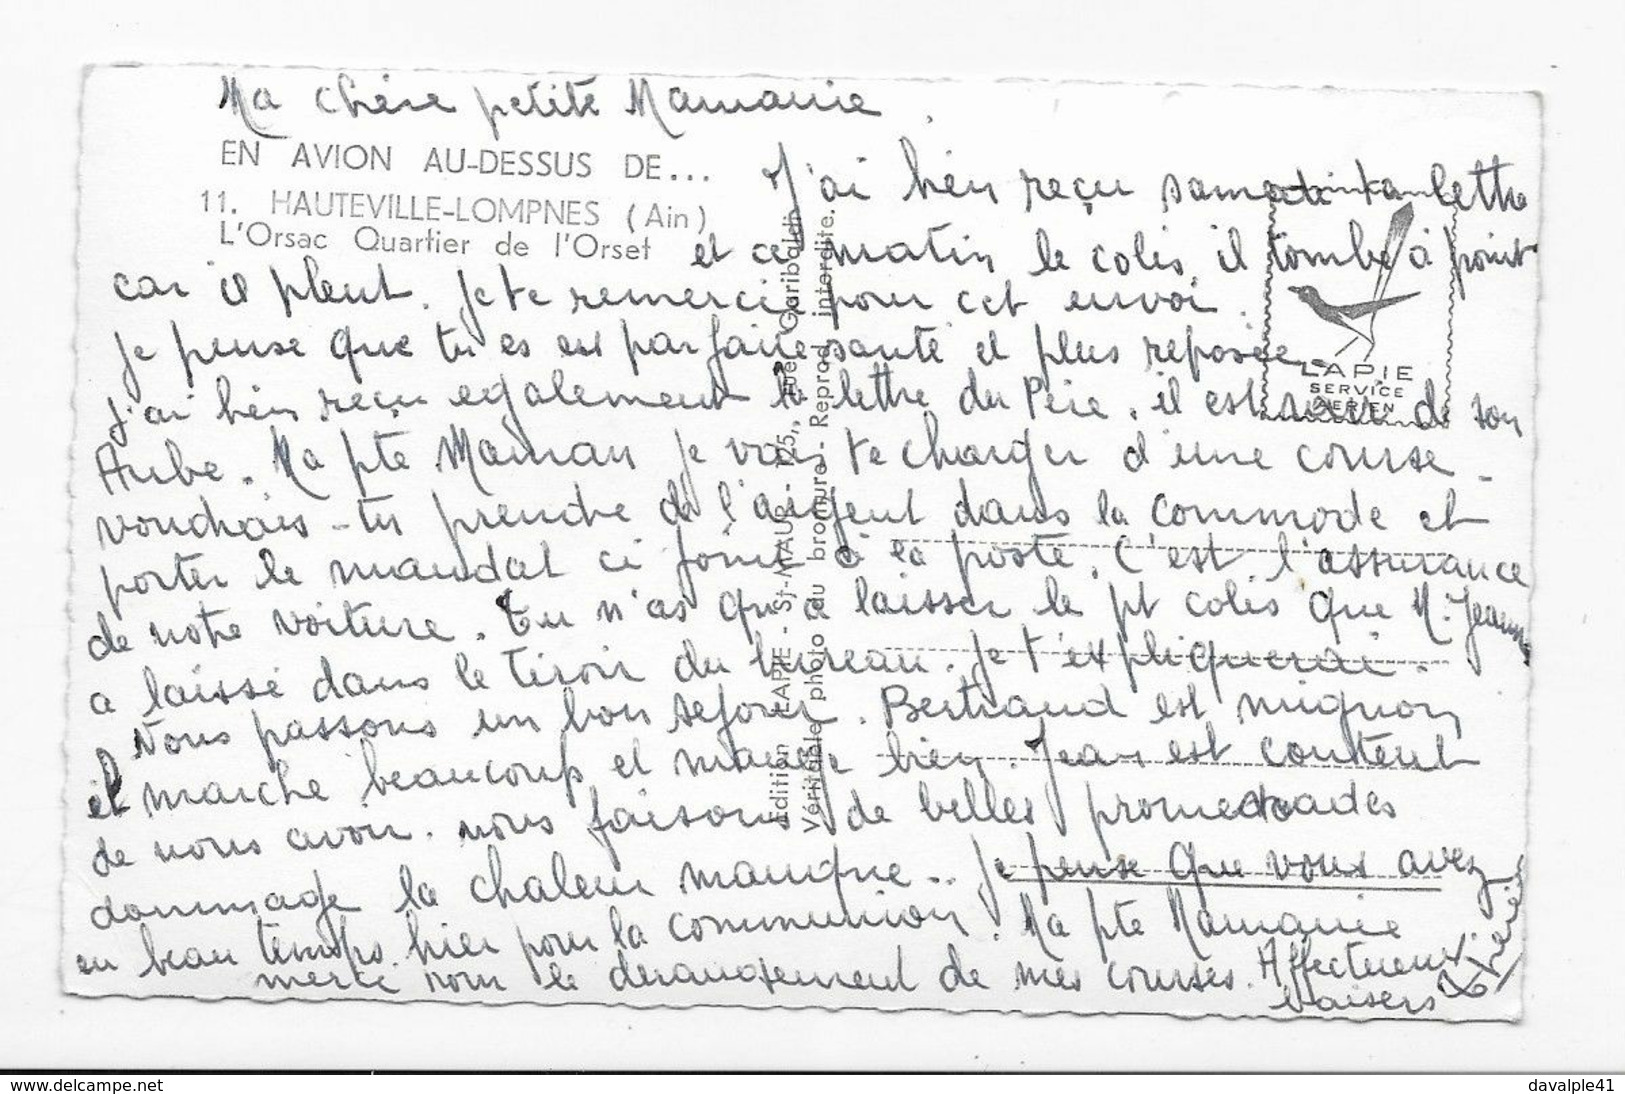 Ma chère petite Mamanie.
EN AVION AU-DESSUS DE...
11. HAUTEVILLE-LOMPNES (Ain)
L'Orsac Quartier de l'Orset
J'ai bien reçu samedi ta lettre
et ce matin le colis, il tombe à point
car il pleut. Je te remercie pour cet envoi.
Je pense que tu es en parfaite santé et plus reposée.
J'ai bien reçu egalement la lettre du Père, il est de son
Aube. Ma pte Maman je vais te charger d'une course.
voudrais-tu prendre de l'argent dans la commode et
porter le mandat ci joint à la poste. C'est l'assurance
de notre voiture. Tu n'as qu'a laisser le pt colis que M. Jeanne
a laissé dans le tiroir du bureau. Je t'expliquerai.
Nous passons un bon sejour. Bertrand est mignon
il marche beaucoup et mange bien. Jean est content
de nous avoir. nous faisons de belles promenades
dommage la chaleur manque.. Je pense que vous avez
eu beau temps hier pour la communion. Ma pte Mamanie
merci pour le derangement de mes courses. Affectueux
baisers
LAPIE
SERVICE
AERIEN
Edition LAPIE - St-MAUR - 125, rue Garibaldi
Véritable photo au bromure - Reprod. interdite.
www.delcampe.net
davalple41